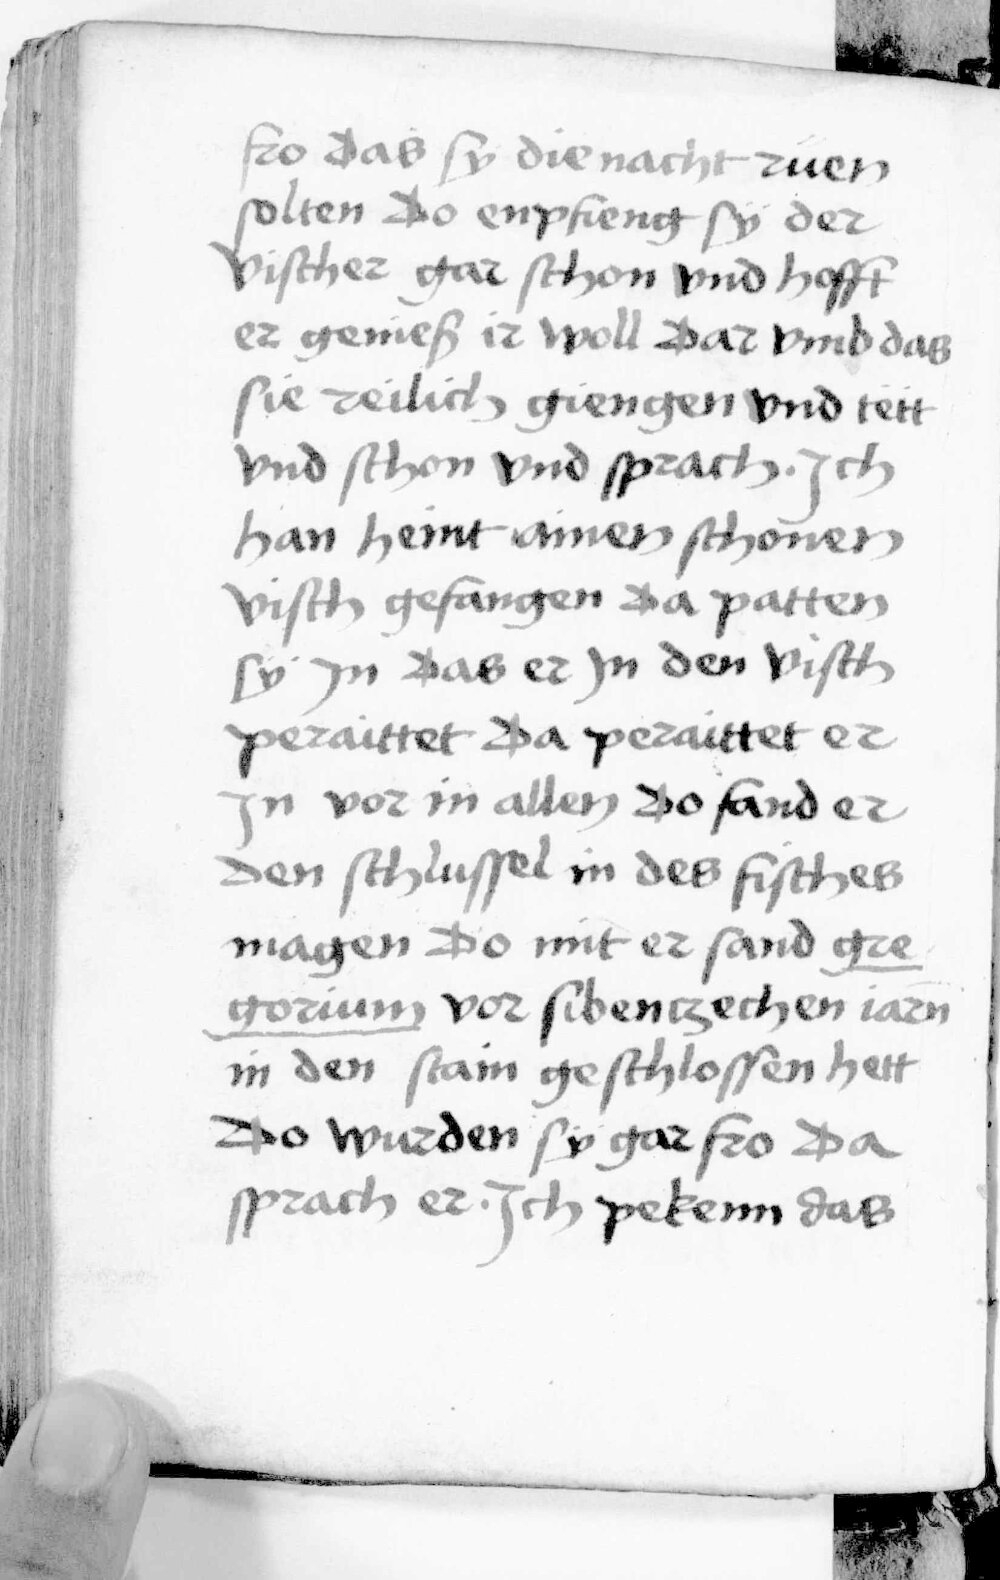 fro Das sy die nacht rüen
solten Do enpfieng sÿ der
vischer gar schon vnd hofft
er genieß ir woll Dar vmb das
sie reilich giengen vnd tëtt
vnd schon vnd sprach. Ich
han heint ainen schonen
visch gefangen Da patten
sÿ In Das er In den visch
peraittet Da peraittet er
In vor in allen Do fand er
Den schlussel in des fisches
magen Do mit er sand gre
gorium vor sibentzechen iarn
in den stain geschlossen hett
Do wurden sÿ gar fro Da
sprach er. Ich pekenn das